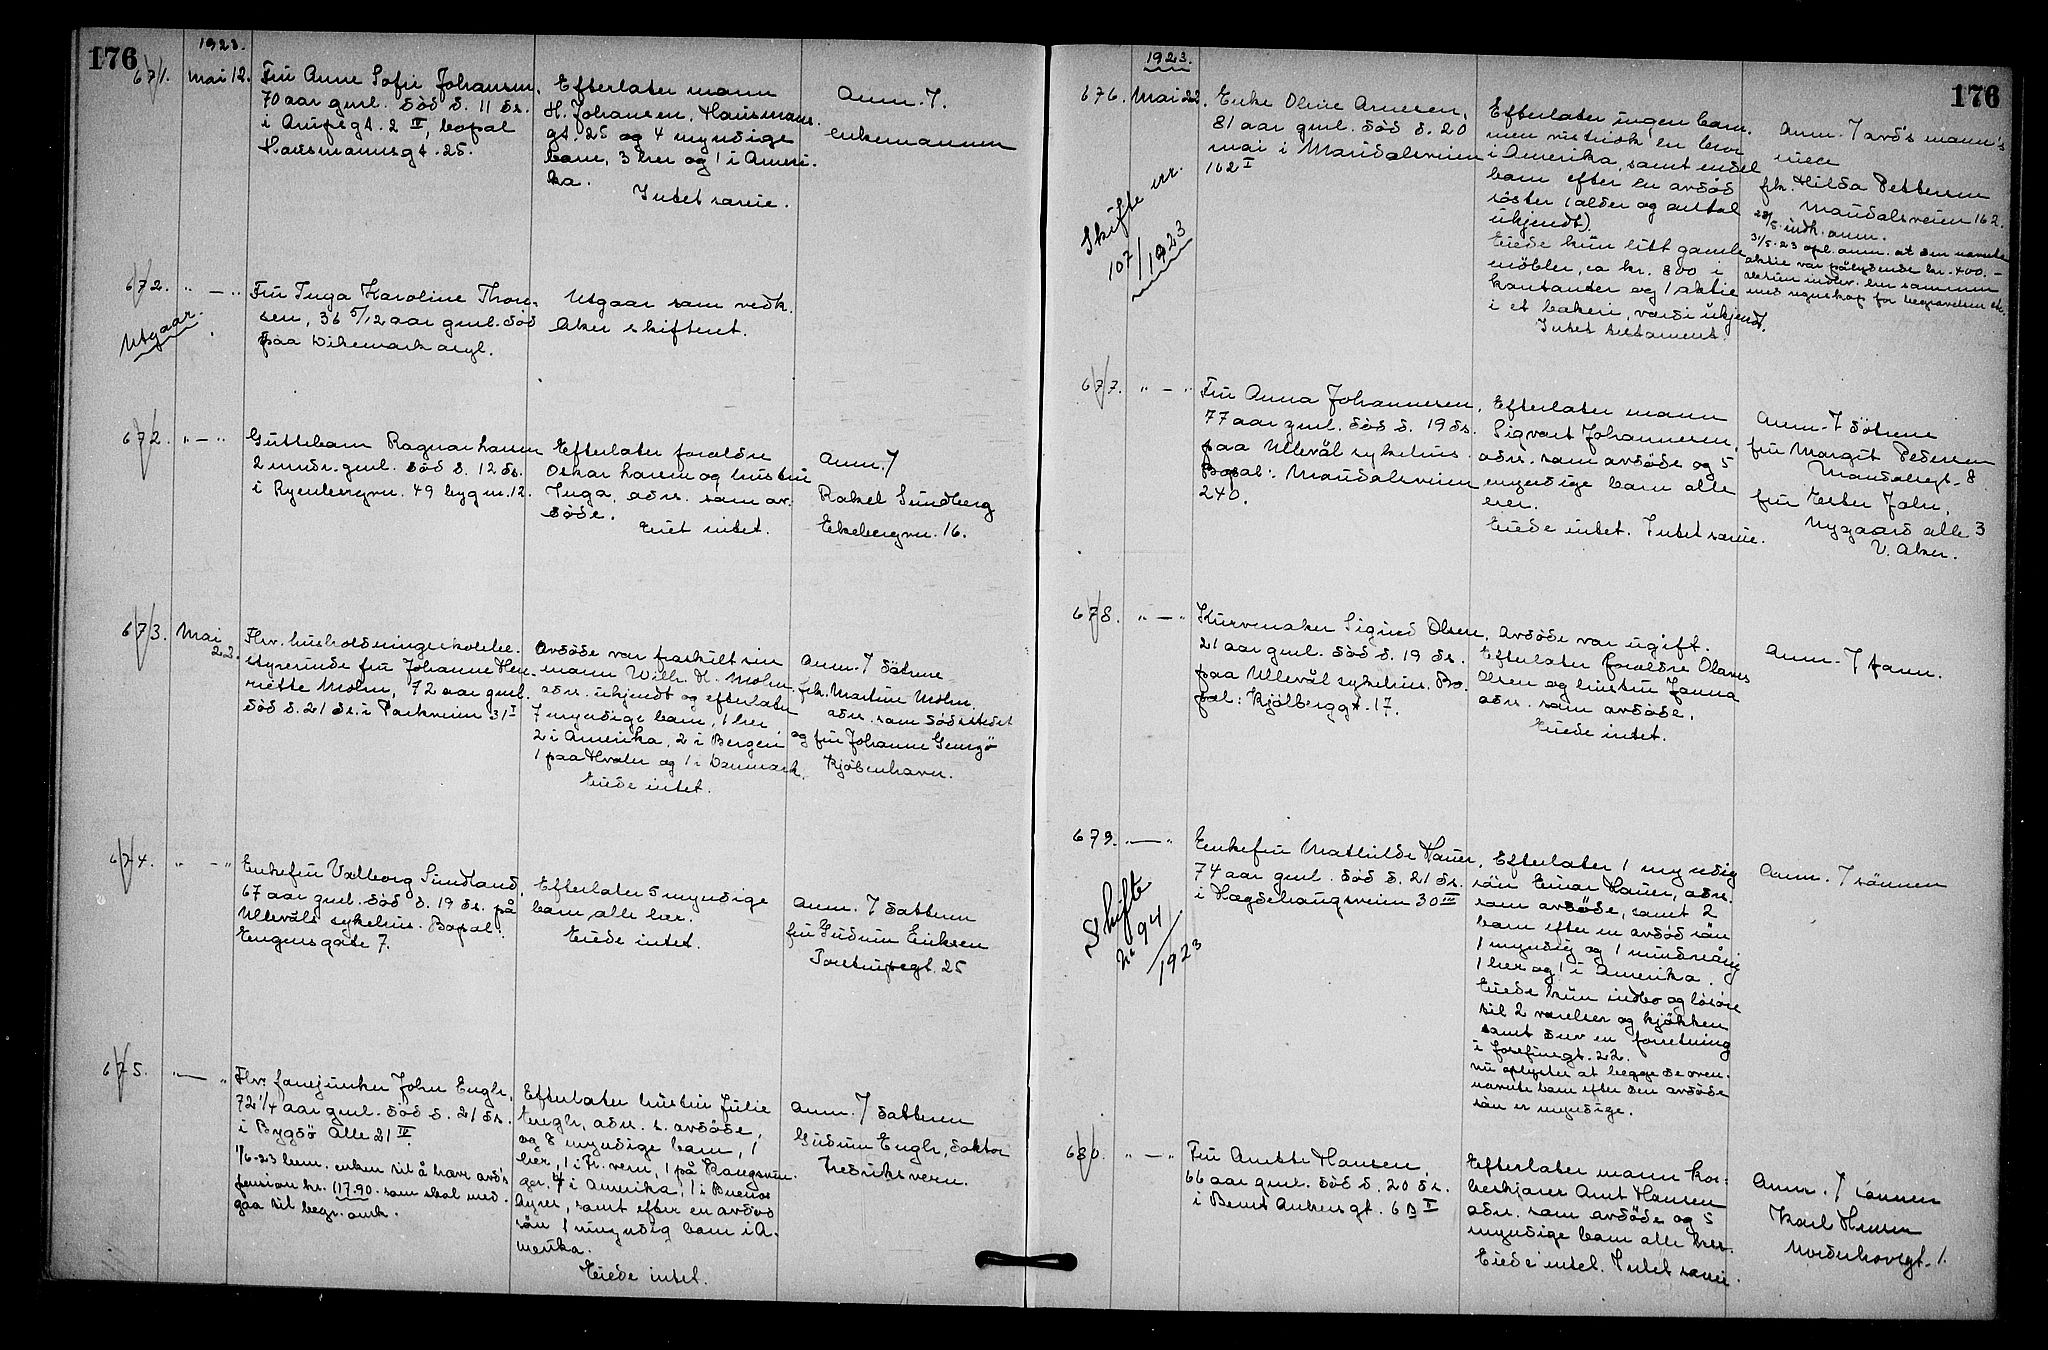 176
1923.
671. Mai 12. Fru Anne Sofie Johansen,
70 aar gml. død d. 11 ds.
i Arupsgt. 2 II, bopæl
Hausmannsgt. 25.
Efterlater mann
H. Johansen, Hausmans-
gt. 25 og 4 myndige
barn, 3 her og 1 i Ameri-
ka.
Intet særeie.
Anm. I.
enkemannen
672. " — " Fru Inga Karoline Thor-
sen, 36 5/12 aar gml. død
paa Dikemark asyl.
Utgaar.
Utgaar som vedk.
Aker skifteret.
672. " — " Guttebarn Ragnar Larsen
2 mndr. gml. død d. 12 ds.
i Ryenbergvn. 49 bygn. 12.
Efterlater forældre
Oskar Larsen og hustru
Inga, adrs. som av-
døde.
Eiet intet.
Anm. I
Rakel Sundberg
Ekebergvn. 16.
673. Mai
22.
Fhv. husholdningsskolebe-
styrerinde fru Johanne Hen-
riette Mohn, 72 aar gml.
død d. 21 ds. i Parkveien 31 I
Avdøde var fraskilt sin
mann Wilh. H. Mohn,
adrs. ukjendt og efterlater
7 myndige barn, 1 her
2 i Amerika, 2 i Bergen
1 paa Hvaler og 1 i Danmark.
Eiede intet.
Anm. I døtrene
frk. Martine Mohn,
adrs. som dødsstedet
og fru Johanne
Kjøbenhavn.
674. " — " Enkefru Valborg Sundland,
67 aar gml. død d. 19 ds. på
Ullevål sykehus. Bopæl:
Eugensgate 7.
Efterlater 5 myndige
barn alle her.
Eiede intet.
Anm. I datteren
fru Gudrun Eriksen
Tostrupsgt. 25
675. " — " Fhv. fanejunker John Engh,
72 1/4 aar gml. død d. 21 ds.
i Bygdø Alle 21 IV.
1/6-23 bem. enken til å hæve avd's
pension kr. 117.90 som skal med-
gaa til begr. omk.
Efterlater hustru Julie
Engh, adr. s. avdøde,
og 8 myndige barn, 1
her, 1 i Fr. vern, 1 på Kongsvin-
ger, 4 i Amerika, 1 i Buenos
Ayres, samt efter en avdød
søn 1 myndig barn i A-
merika.
Eiede intet.
Anm. I datteren
Gudrun Engh, doktor
Fredriksvern.
176
1923.
676. Mai 22. Enke Oline Arnesen,
81 aar gml. død d. 20
mai i Maridalsveien
162 I
Skifte nr.
107/1923
Efterlater ingen barn
men visstnok en bror
i Amerika, samt endel
barn efter en avdød
søster (alder og antal
ukjendt).
Eiede kun litt gamle
møbler, ca kr. 800 i
kontanter og 1 aktie
i et bakeri, værdi ukjendt.
Intet testament.
Anm. I avd's mann's
niece
frk. Hilda Pettersen
Maridalsveien 162.
28/5. indk. anm.
31/5-23 opl. anm. at den nævnte
aktie var pålydende kr. 400.-
med regnskap for begravelsen etc.
677. " — " Fru Anna Johannesen,
77 aar gml. død d. 19 ds.
paa Ullevål sykehus.
Bopæl: Maridalsveien
240.
Efterlater mann
Sigvart Johannesen,
adrs. som avdøde og 5
myndige barn alle
her.
Eiede intet. Intet særeie.
Anm. I døtrene
fru Margit Pedersen
Maridalsgt. 8
fru Ester Johs.
Nygaards alle 3
V. Aker.
678. " — " Kurvmaker Sigurd Olsen,
21 aar gml. død d. 19 ds.
paa Ullevål sykehus. Bo-
pæl: Kjølberggt. 17.
Avdøde var ugift.
Efterlater forældre Olaves
Olsen og hustru Janna
adrs. som avdøde.
Eiede intet.
Anm. I faren.
679. " — " Enkefru Mathilde Hauer,
74 aar gml. død d. 21 ds.
i Hægdehaugsveien 30 III
Skifte
No 94/1923
Efterlater 1 myndig
søn Einar Hauer, adrs.
som avdøde, samt 2
barn efter en avdød søn
1 myndig og 1 mindreårig
1 her og 1 i Amerika.
Eiede kun indbo og løsøre
til 2 værelser og kjøkken
samt drev en forretning
i Josefinegt. 22.
nu oplystes at begge de oven-
nævnte barn efter den avdøde
søn er myndige.
Anm. I sønnen
680. " — " Fru Anette Hansen,
66 aar gml. død d. 20 ds.
i Bernt Ankers gt. 6 B I
Efterlater mann Kor-
beskjærer Arnt Hansen
adr. som avdøde og 5
myndige barn alle her.
Eiede intet. Intet særeie.
Anm. I sønnen
Karl Hansen
Norderhovgt. 1.